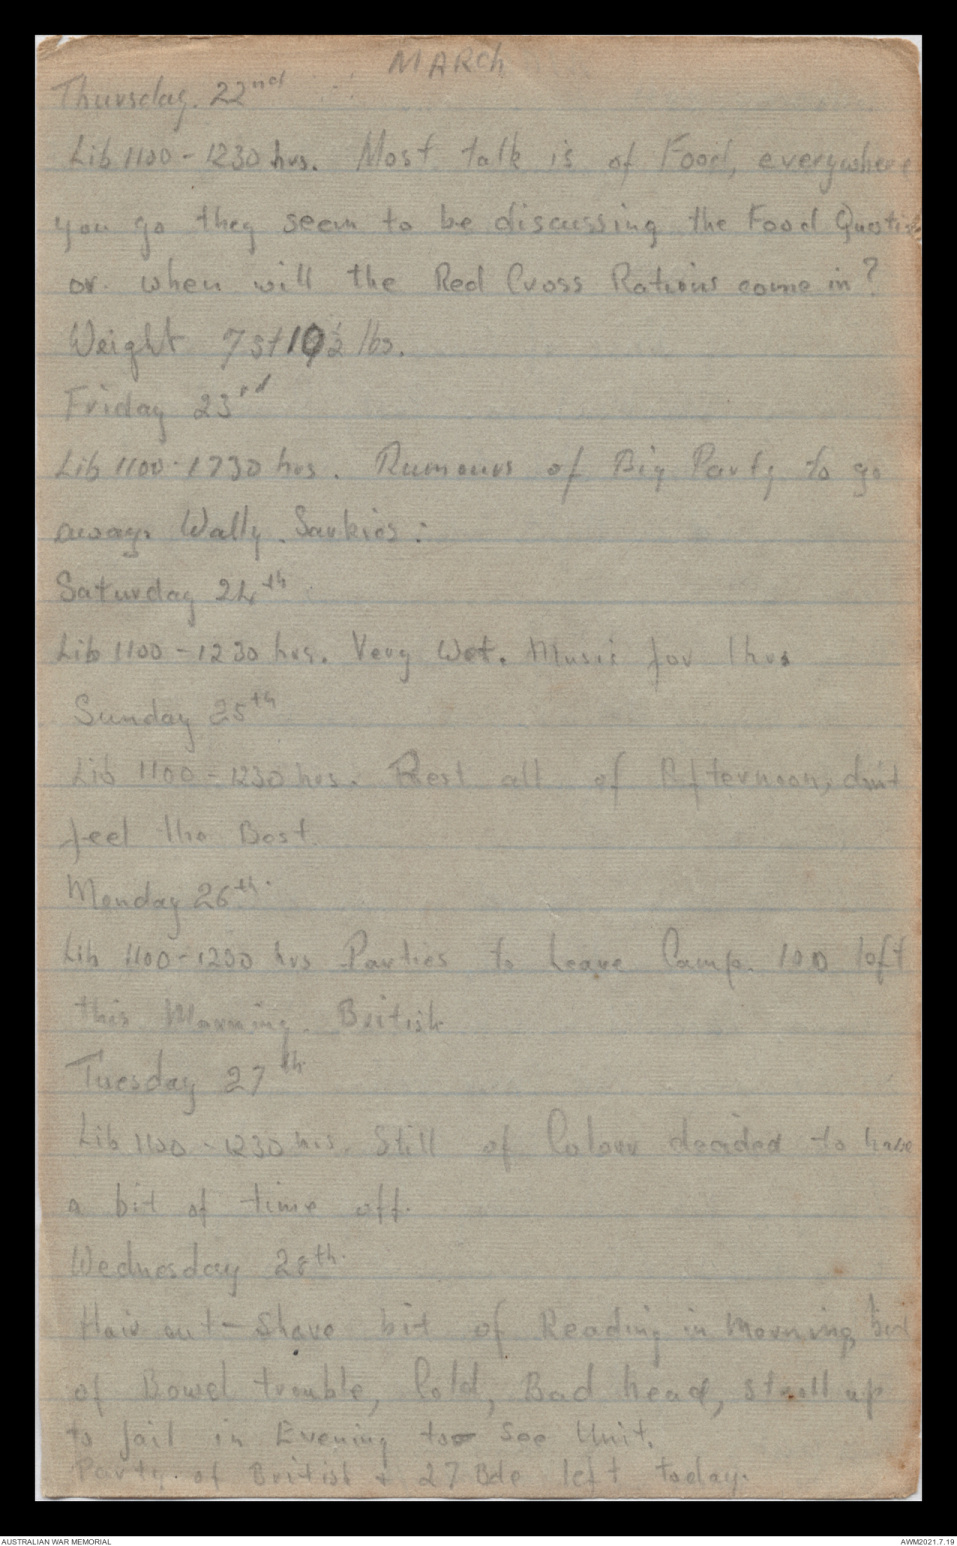 MARCh
Thursday. 22nd
Lib 1100 - 1230 hrs. Most talk is of Food, everywhere
you go they seem to be discussing the Food Question
or when will the Red Cross Rations come in?
Weight 7st 10½ lbs.
Friday 23rd
Lib 1100 - 1230 hrs. Rumours of Big Party to go
away. Wally. Sarkies :
Saturday 24th
Lib 1100 - 1230 hrs. Very Wet. Music for 1 hrs
Sunday 25th
Lib 1100 - 1230 hrs. Rest all of Afternoon, don't
feel the Best.
Monday 26th.
Lib 1100 - 1230 hrs Parties to Leave Camp. 100 left
this Morning. British
Tuesday 27th
Lib 1100 - 1230 hrs. Still of Colour decided to have
a bit of time off.
Wednesday 28th.
Hair cut - Shave bit of Reading in Morning, bit
of Bowel trouble, Cold, Bad head, stroll up
to Jail in Evening to see Unit.
Party. of British & 27 Bde left today.
AUSTRALIAN WAR MEMORIAL AWM2021.7.19